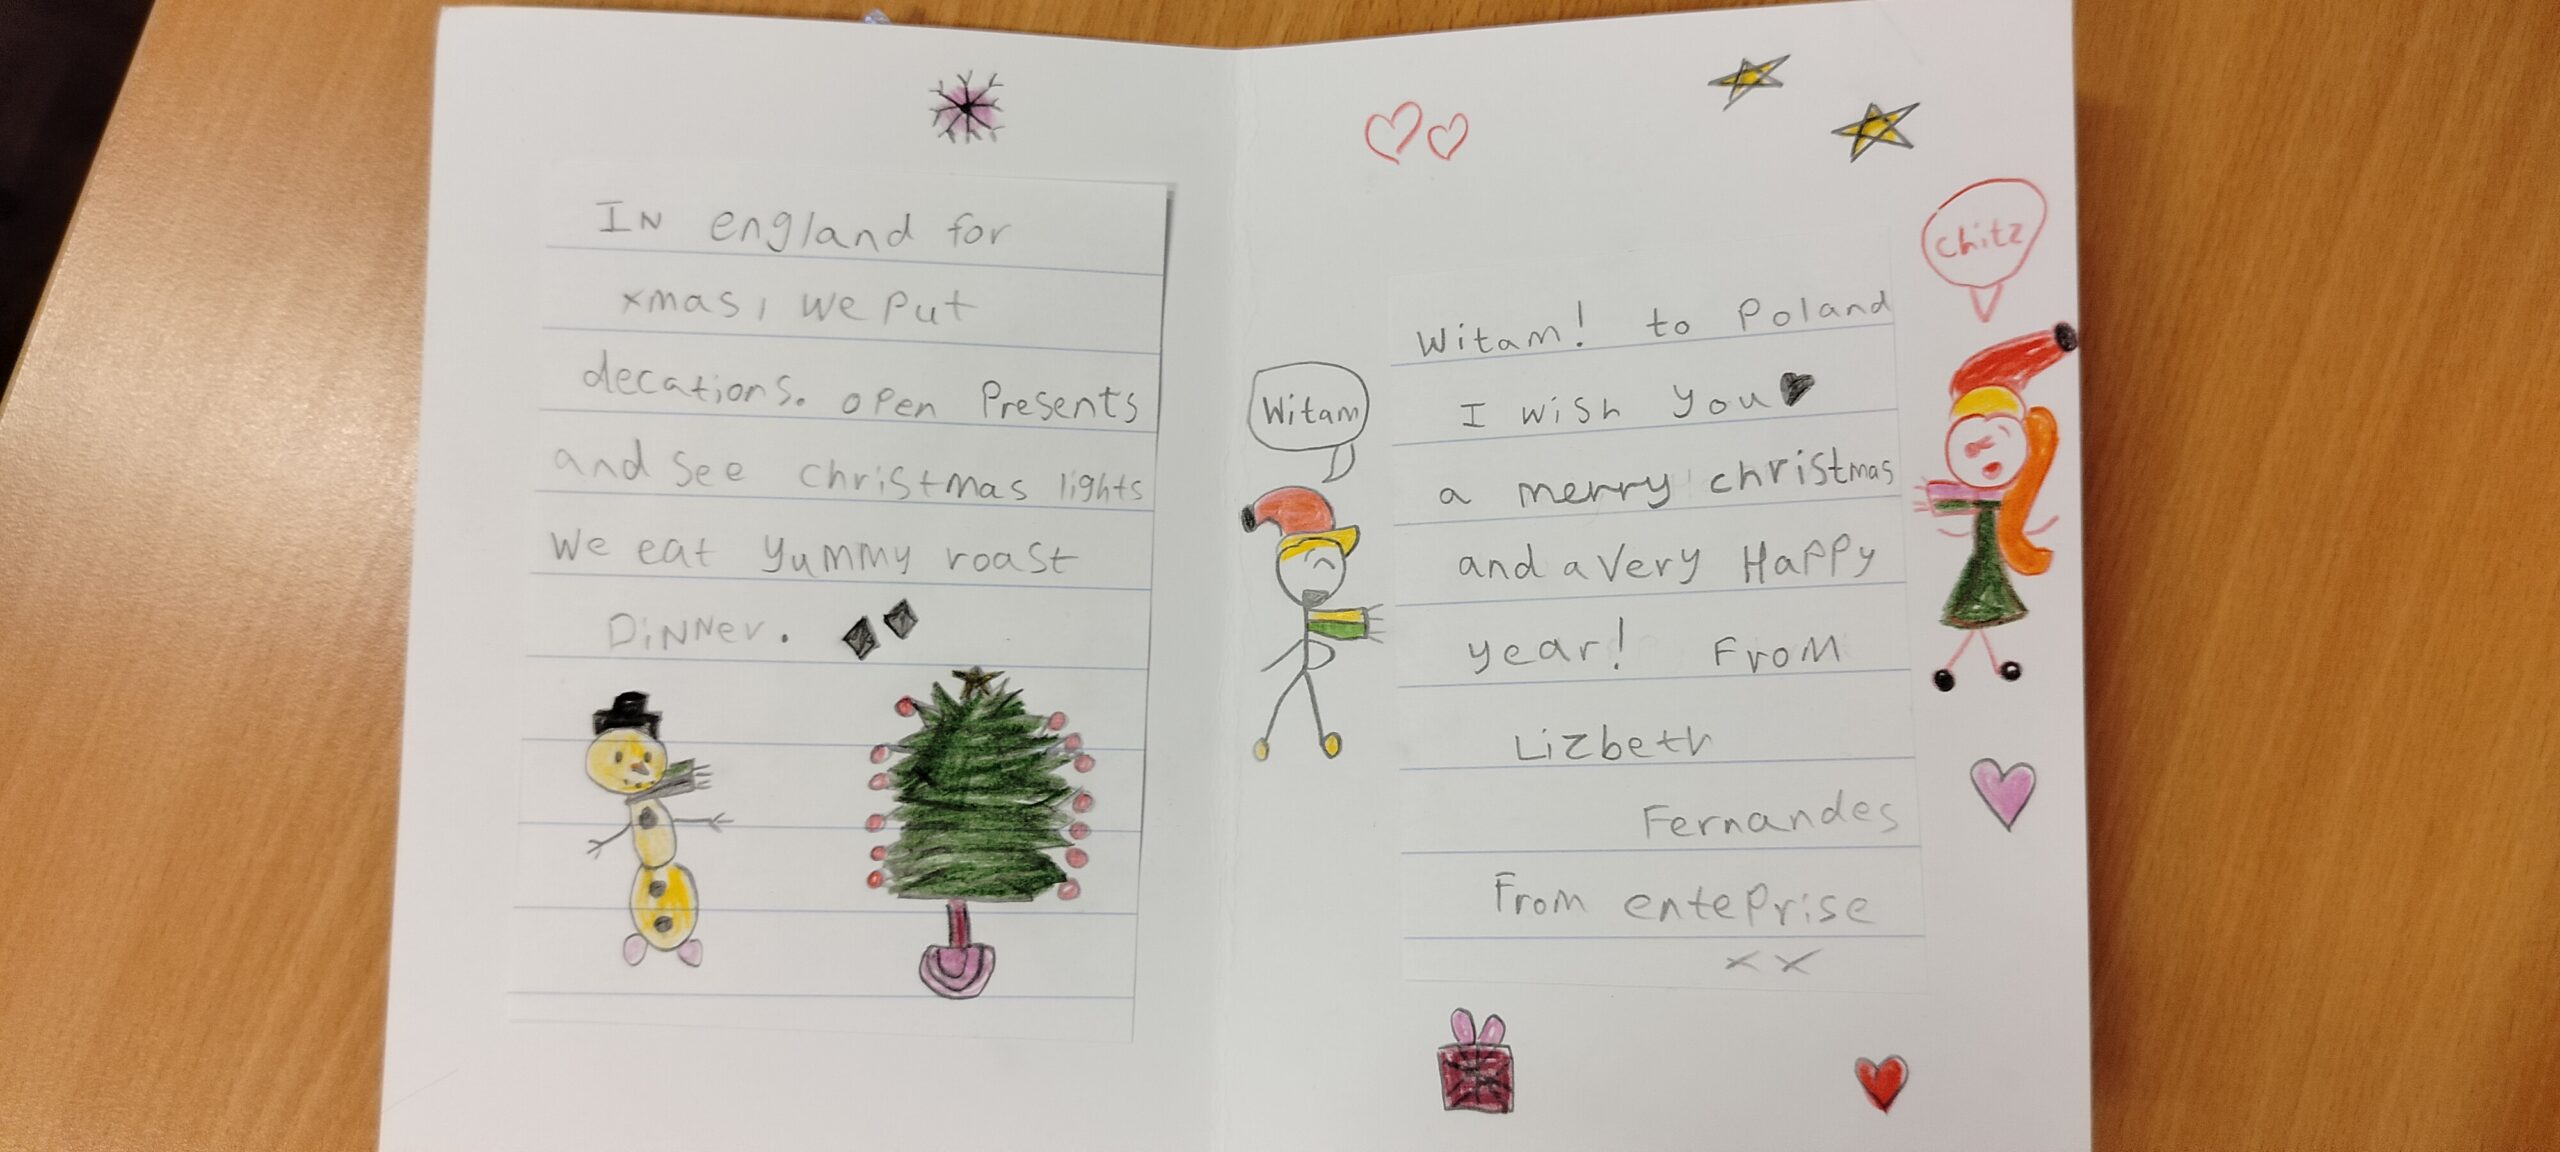 IN england for
xmas, we put
decations. open presents
and see christmas lights
we eat yummy roast
DiNNer.
Witam! to Poland
I wish you
a merry christmas
and a very Happy
year! From
Lizbeth
Fernandes
From enteprise
xx
Witam
Chitz